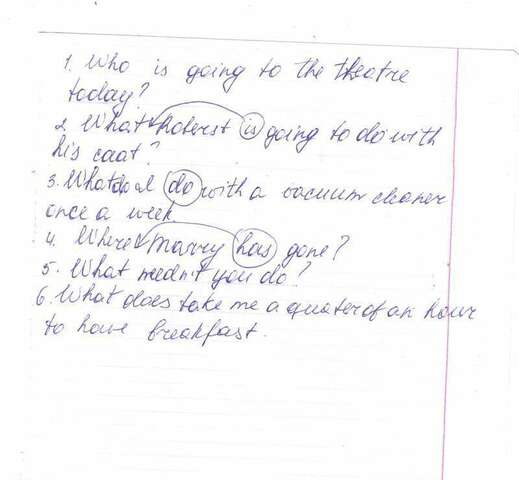 1. Who is going to the theatre
today?
2. What Roberst is going to do with
his coat?
3. What do I do with a vacuum cleaner
once a week
4. Where Marry has gone?
5. What needn't you do?
6. What does take me a quater of an hour
to have breakfast.